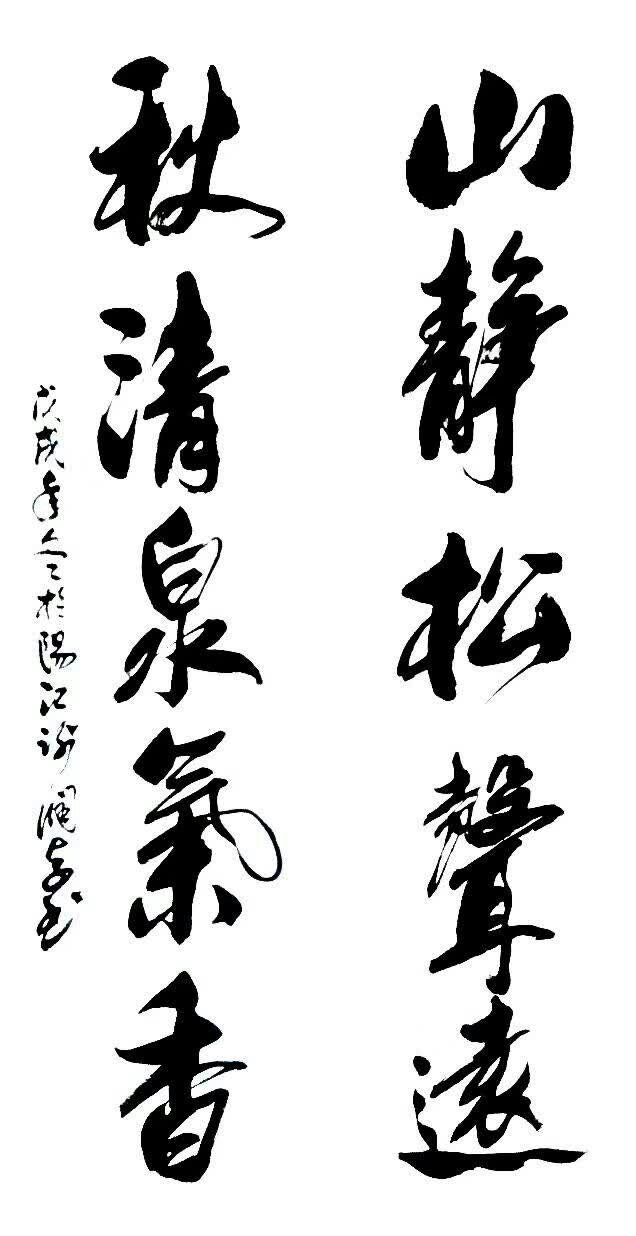 山靜松聲遠
秋清泉氣香
戊戌年冬於陽江